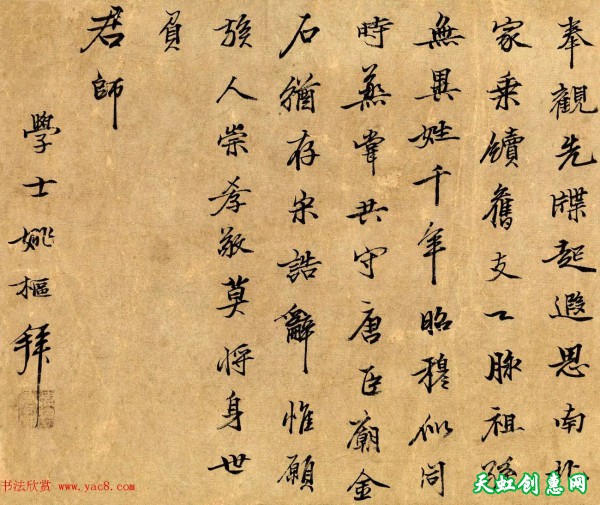 奉觀先牒起遐思南北
家乗續舊支〻脉祖孫
無異姓千年昭穆似同
時蒸嘗共守唐臣廟金
石猶存宋誥辭惟願
族人崇孝敬莫將身世
負
君師
學士姚樞拜
书法欣赏 www.yac8.com
天虹创惠网